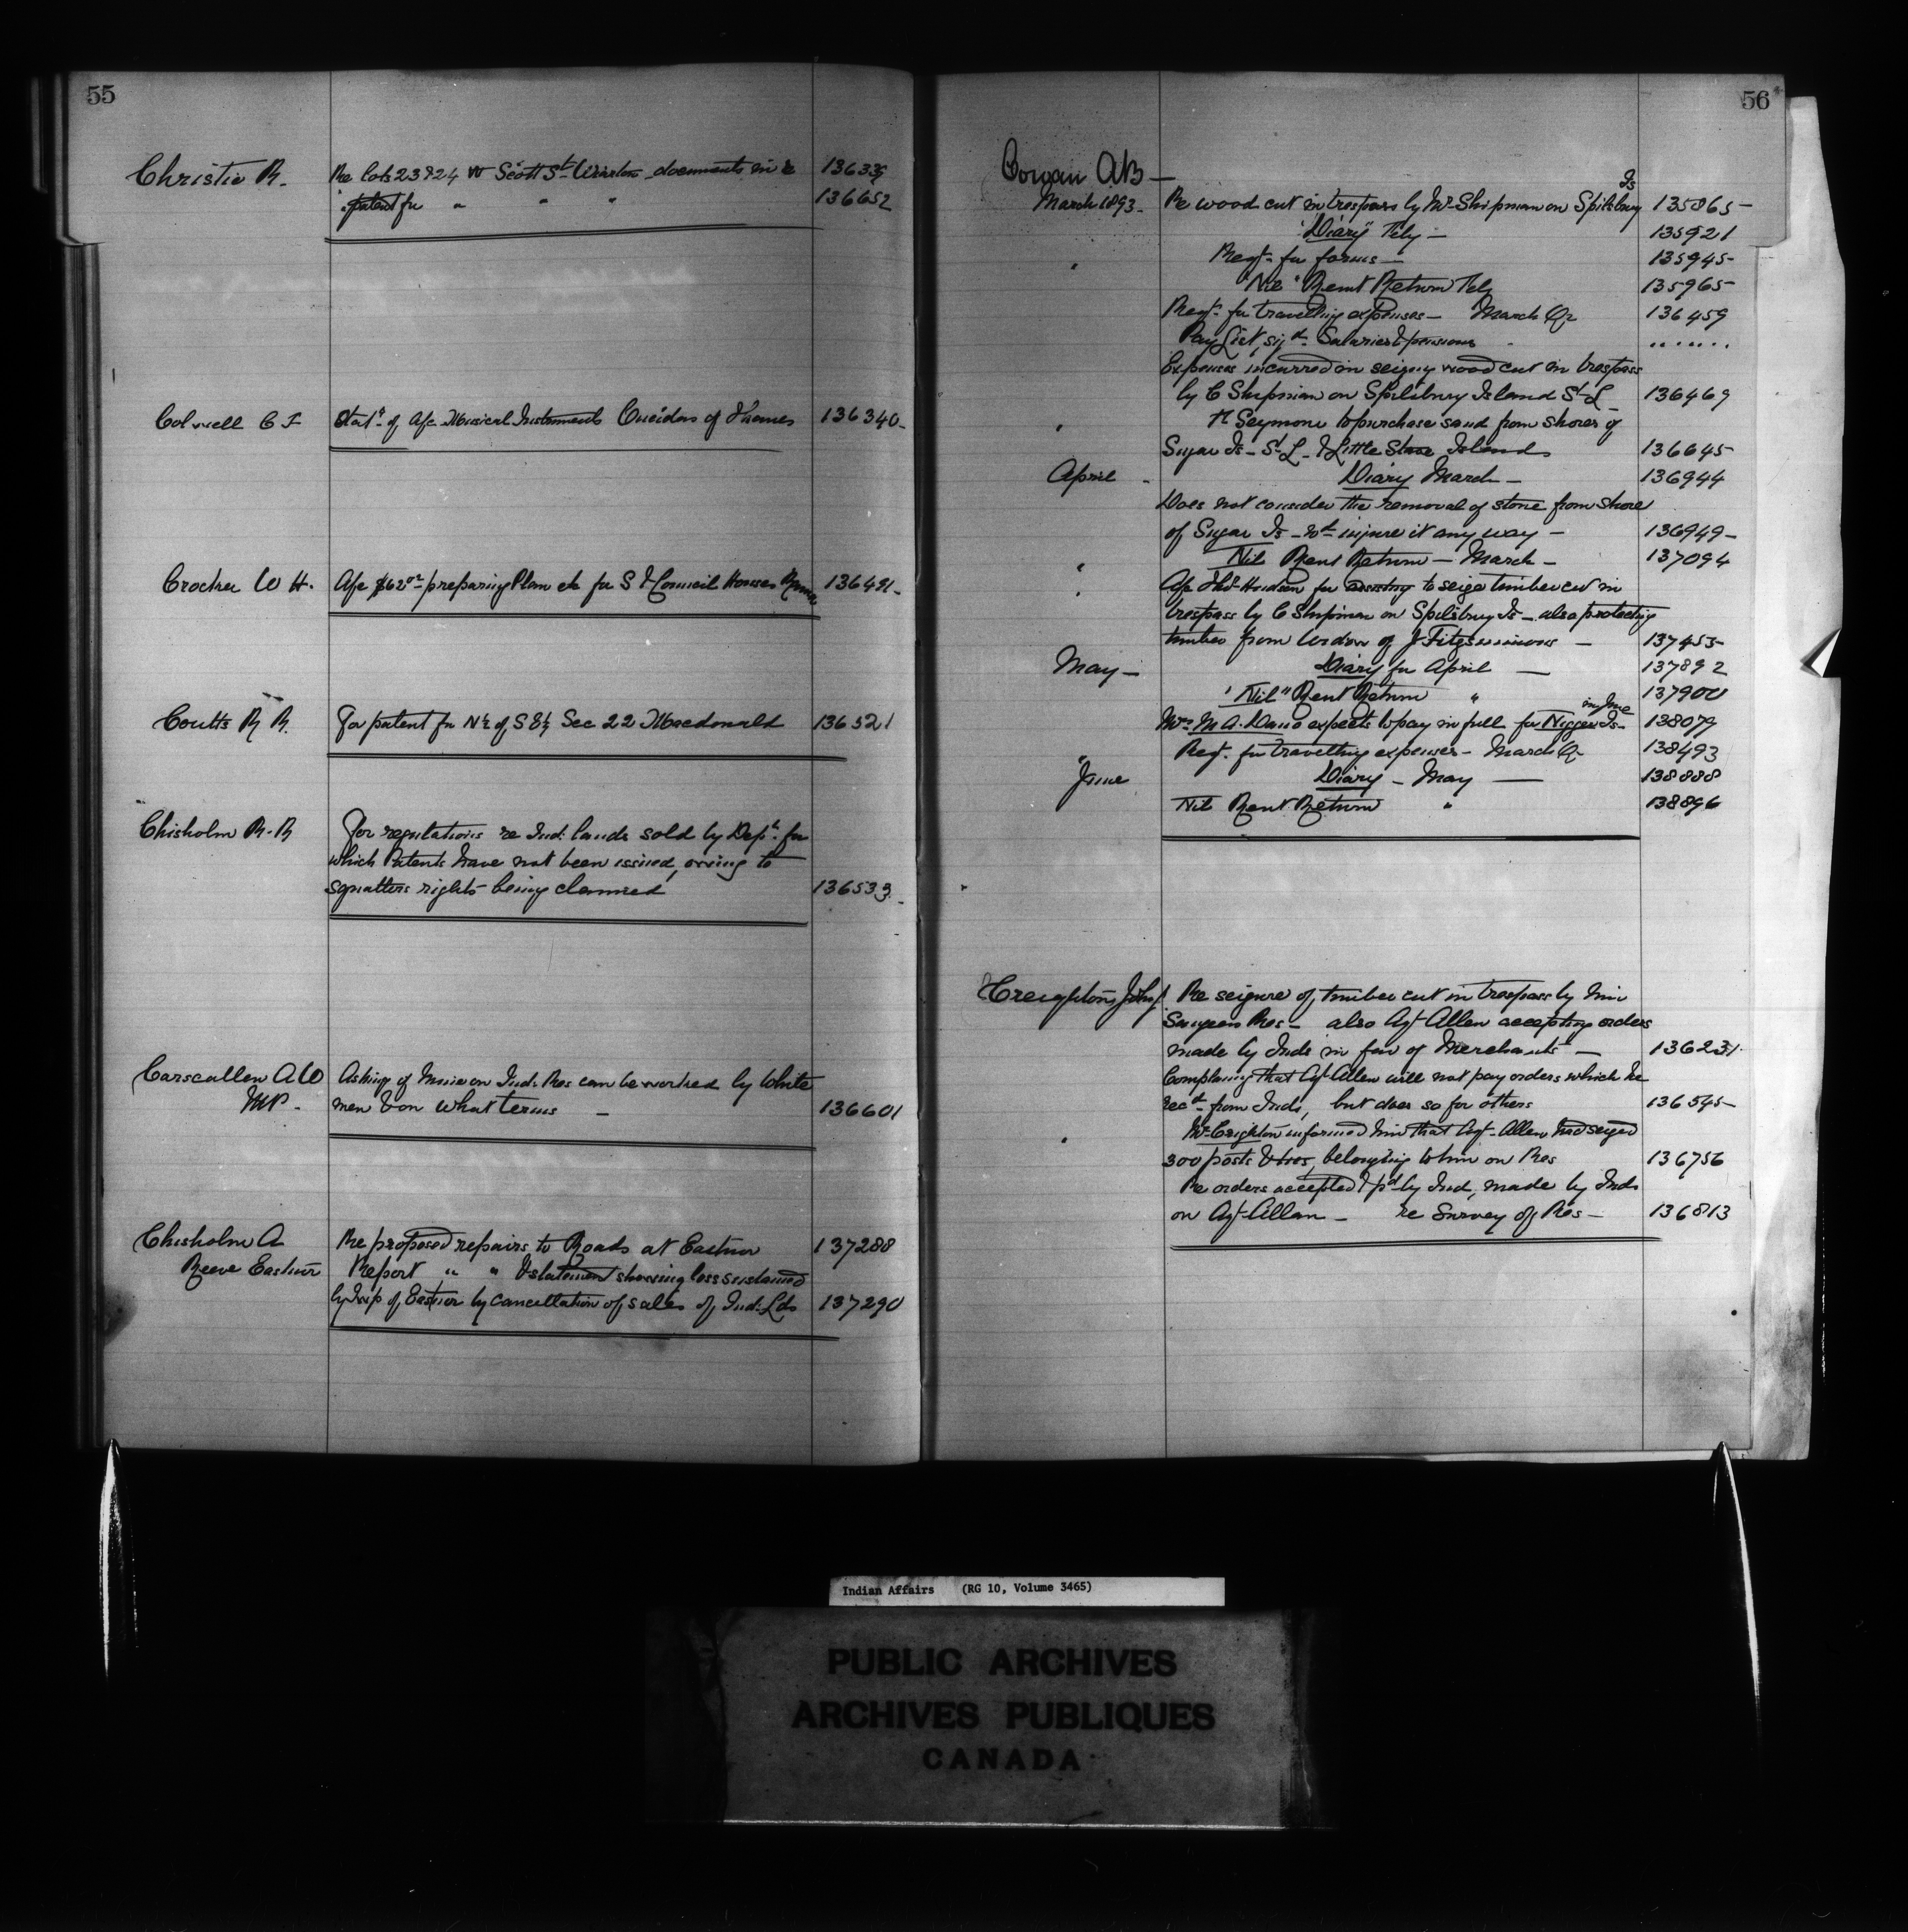 55
Christie R. Re lots 23 & 24 W Scott St. Wiarton documents in re 136335
" patent for " " " 136652
Colwell C F Stat. of A/c Musical Instruments Oneidas of Thames 136340
Crocker W H. A/c $62 preparing Plan etc for S & Council Houses 136491
Coutts R R. For patent for N½ of S E¼ Sec 22 Macdonald 136521
Chisholm R. R For regulations re Ind. lands sold by Dept. for
which Patents have not been issued, owing to
squatters rights being claimed 136533
Carscallen A W Asking if Mine on Ind. Res can be worked by White
MP. men & on what terms — 136601
Chisholm A Re proposed repairs to Roads at Eastnor 137288
Reeve Eastnor Report " " & statement showing loss sustained
by Twp of Eastnor by cancellation of sales of Ind. Lds 137290
56
Cowan A B —
Is
March 1893. Re wood cut in trespass by Mr Shipman on Spilsbury 135865
"Diary" Feby — 135921
" Reqt. for forms — 135945
"Nil" Rent Return Feby 135965
Reqt. for travelling expenses — March Qr 136459
Pay List, sigd. Salaries & pensions " .......
Expenses incurred in seizing wood cut in trespass
by C Shipman on Spilsbury Island St L 136469
" Seymour to purchase sand from shores of
Sugar Is — St L — & Little Stave Islands 136645
April - Diary March — 136944
Does not consider the removal of stone from shore
of Sugar Is — wd. injure it any way — 136949
" Nil Rent Return — March — 137094
" A/c Hudson for assisting to seize timber cut in
trespass by C Shipman on Spilsbury Is — also protecting
timber from Widow of J Fitzsimmons — 137453
May — Diary for April — 137892
"Nil" Rent Return " 137900
in June
Mrs M. A. Dano expects to pay in full for Nigger Is — 138079
" Reqt. for travelling expenses — March Qr 138493
June Diary — May — 138888
Nil Rent Return " 138896
Creighton John Re seizure of timber cut in trespass by him
Saugeen Res — also Agt Allen accepting orders
made by Inds in fav of Merchants — 136231
Complaining that Agt Allen will not pay orders which he
recd. from Inds, but does so for others 136545
" Mr Creighton informed him that Agt. Allen had seized
300 posts & ties, belonging to him on Res 136756
Re orders accepted & pd by Ind, made by Inds
on Agt Allan — re Survey of Res — 136813
Indian Affairs (RG 10, Volume 3465)
PUBLIC ARCHIVES
ARCHIVES PUBLIQUES
CANADA